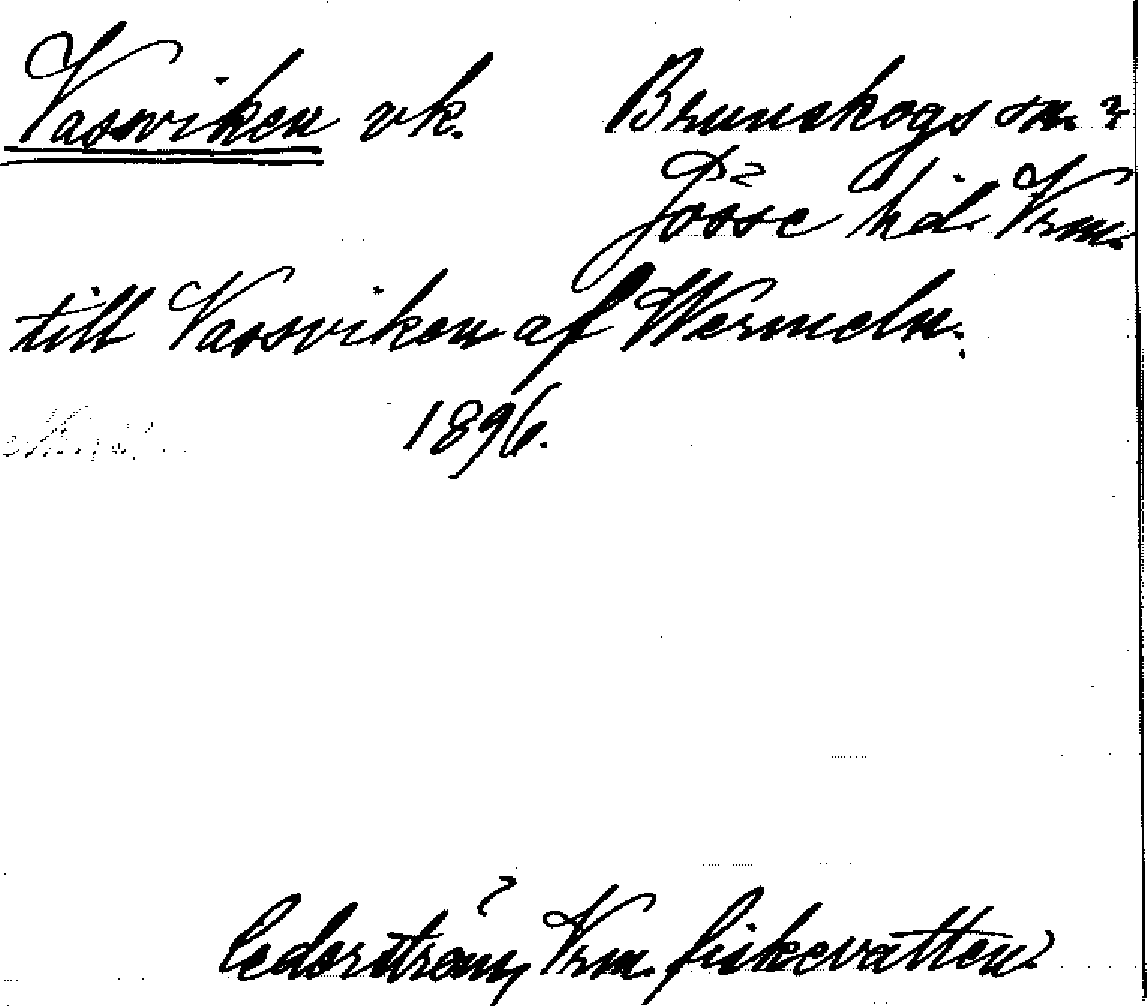 Vassviken vk. Brunskogs sn. ?
Jösse hd. Vrm.
till Vassviken af Wermeln.
1896.
Cederström, Vrm. fiskevatten.